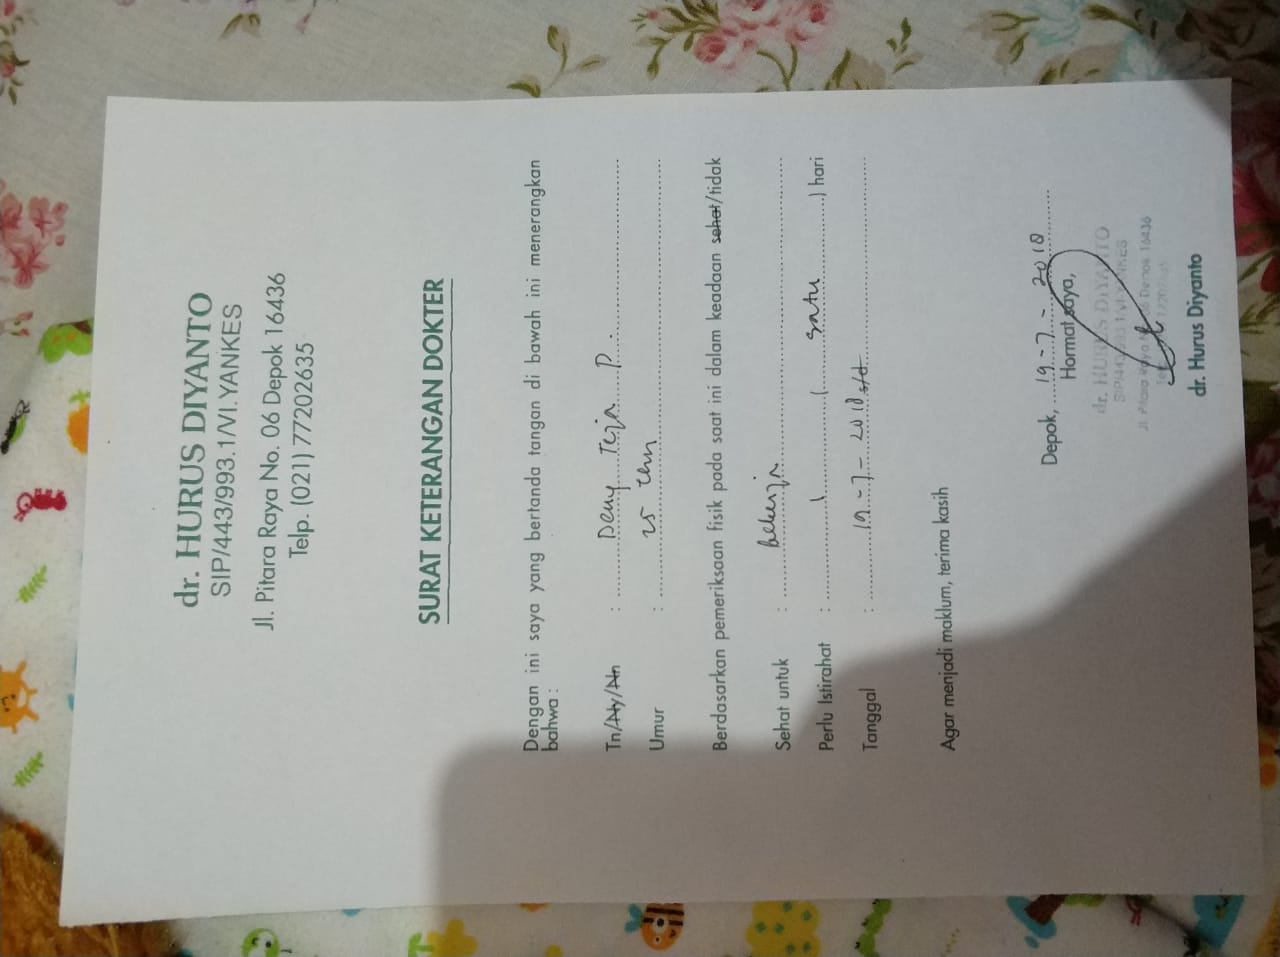 dr. HURUS DIYANTO
SIP/443/993.1/VI.YANKES
Jl. Pitara Raya No. 06 Depok 16436
Telp. (021) 77202635
SURAT KETERANGAN DOKTER
Dengan ini saya yang bertanda tangan di bawah ini menerangkan
bahwa :
Tn/Ny/An : Deny Teja P.
Umur : 25
Berdasarkan pemeriksaan fisik pada saat ini dalam keadaan sehat/tidak
Sehat untuk : bekerja
Perlu Istirahat : 1 ( satu ) hari
Tanggal : 19-7-2018 s/d
Agar menjadi maklum, terima kasih
Depok, 19-7-2018
Hormat saya,
dr. HURUS DIYANTO
SIP/443/993.1/VI.YANKES
Jl. Pitara Raya No. 06 Depok 16436
dr. Hurus Diyanto